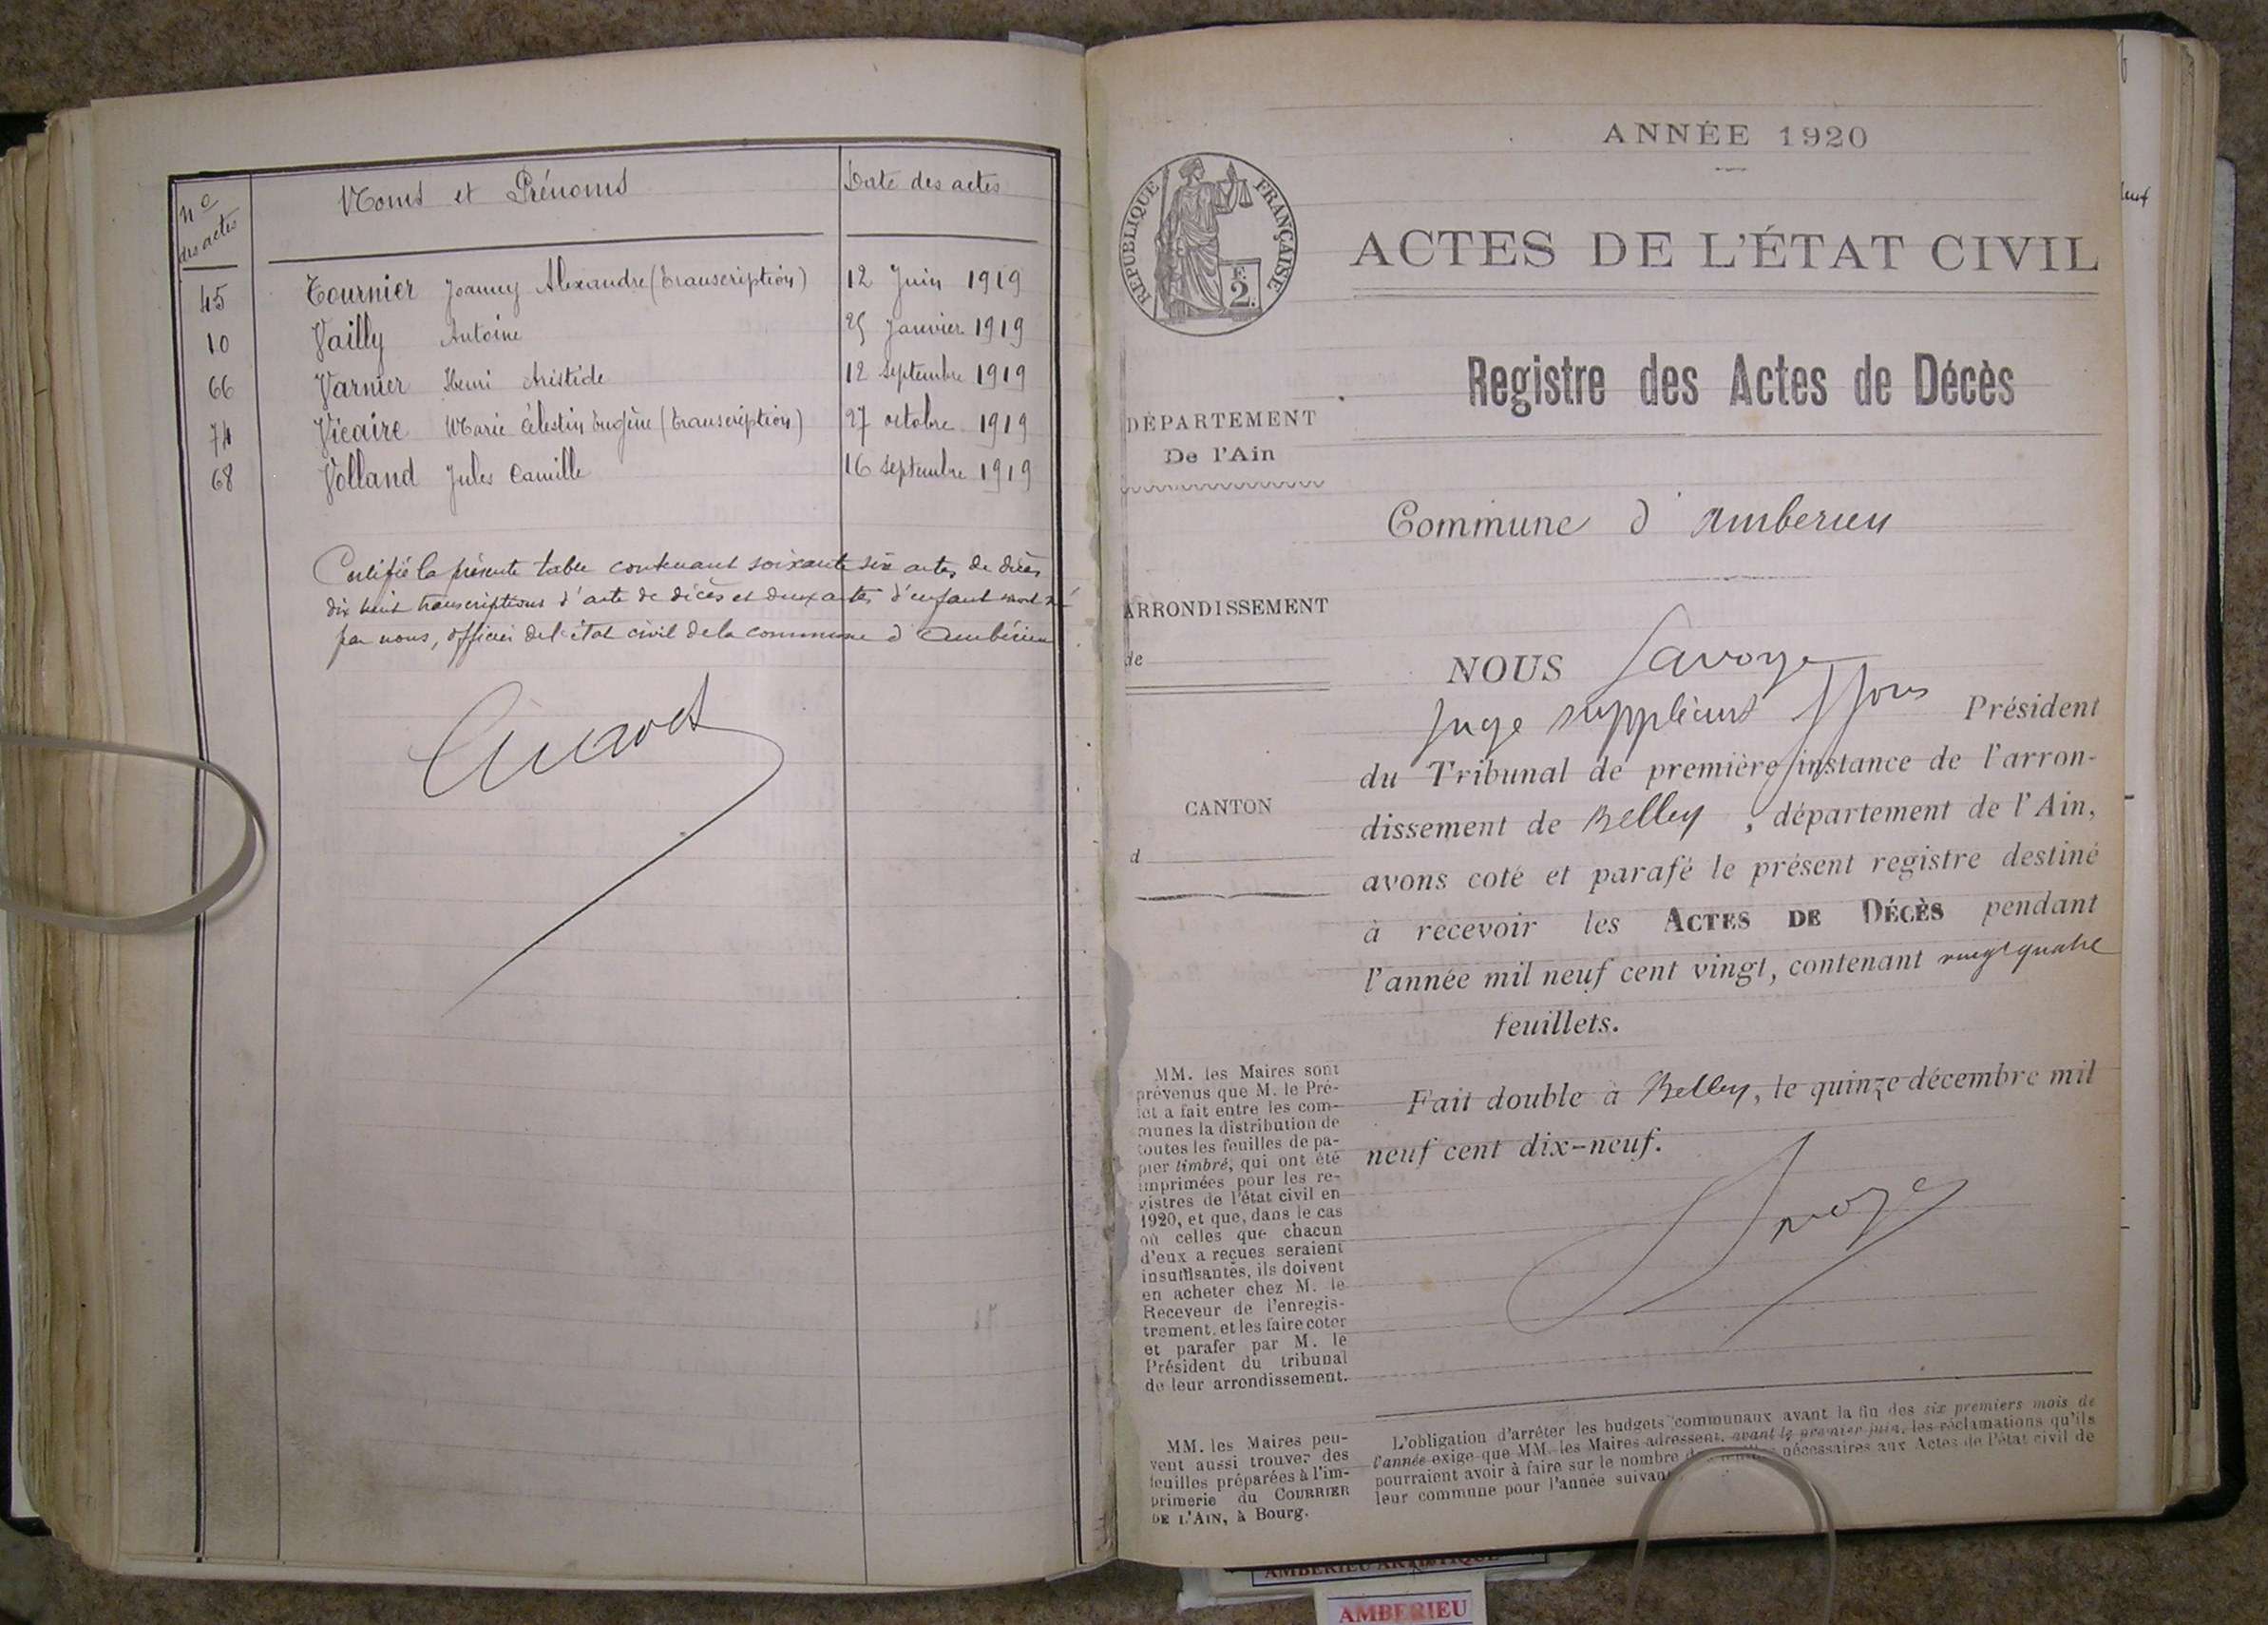 Nº des actes
Noms et Prénoms
Date des actes
45 Tournier Joanny Alexandre (transcription) 12 Juin 1919
10 Vailly Antoine 25 Janvier 1919
66 Varnier Henri Aristide 12 septembre 1919
74 Vicaire Marie Célestin Eugène (transcription) 27 octobre 1919
68 Volland Jules Camille 16 septembre 1919
Certifié la présente table contenant soixante six actes de décès
dix huit transcriptions d'acte de décès et deux actes d'enfant mort né
par nous, officier de l'état civil de la commune d'Ambérieu
ANNÉE 1920
RÉPUBLIQUE FRANÇAISE
F. 2.
ACTES DE L'ÉTAT CIVIL
Registre des Actes de Décès
DÉPARTEMENT
De l'Ain
Commune d'Amberieu
ARRONDISSEMENT
de
CANTON
d
NOUS Savoye
Juge suppléant ffons Président
du Tribunal de première instance de l'arron-
dissement de Belley, département de l'Ain,
avons coté et parafé le présent registre destiné
à recevoir les ACTES DE DÉCÈS pendant
l'année mil neuf cent vingt, contenant vingt quatre
feuillets.
Fait double à Belley, le quinze décembre mil
neuf cent dix-neuf.
Savoye
MM. les Maires sont
prévenus que M. le Pré-
fet a fait entre les com-
munes la distribution de
toutes les feuilles de pa-
pier timbré, qui ont été
imprimées pour les re-
gistres de l'état civil en
1920, et que, dans le cas
où celles que chacun
d'eux a reçues seraient
insuffisantes, ils doivent
en acheter chez M. le
Receveur de l'enregis-
trement, et les faire coter
et parafer par M. le
Président du tribunal
de leur arrondissement.
MM. les Maires peu-
vent aussi trouver des
feuilles préparées à l'im-
primerie du COURRIER
DE L'AIN, à Bourg.
L'obligation d'arrêter les budgets communaux avant la fin des six premiers mois de
l'année exige que MM. les Maires adressent, avant le premier juin, les réclamations qu'ils
pourraient avoir à faire sur le nombre nécessaires aux Actes de l'état civil de
leur commune pour l'année
AMBERIEU ARTISTIQUE
AMBERIEU